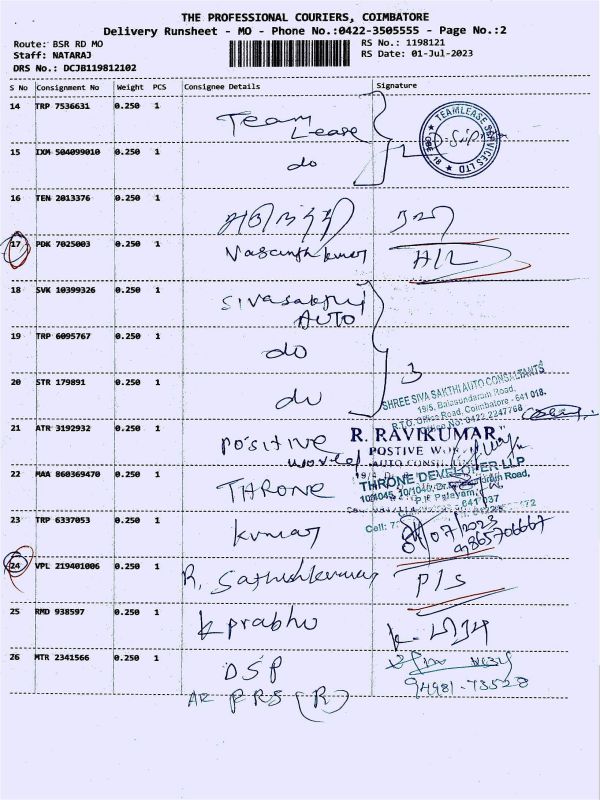 THE PROFESSIONAL COURIERS, COIMBATORE
Delivery Runsheet - MO - Phone No.:0422-3505555 - Page No.:2
Route: BSR RD MO
Staff: NATARAJ
DRS No.: DCJB119812102
RS No.: 1198121
RS Date: 01-Jul-2023
S No Consignment No Weight PCS Consignee Details Signature
14 TRP 7536631 0.250 1 Team Lease
TEAMLEASE SERVICES LTD
15 IXM 504099010 0.250 1 do 2
16 TEN 2013376 0.250 1
17 PDK 7025003 0.250 1 Vasanthkumar
18 SVK 10399326 0.250 1 Sivasakthi AUTO
19 TRP 6095767 0.250 1 do
3
20 STR 179891 0.250 1 do
SHREE SIVA SAKTHI AUTO CONSULTANTS
19/5, Balasundaram Road,
R.T.O. Office Road, Coimbatore - 641 018.
No: 0422 2247768
21 ATR 3192932 0.250 1 positive world
R. RAVIKUMAR
POSTIVE
AUTO
22 MAA 860369470 0.250 1 THRONE
THRONE DEVELOPER LLP
Road,
Cell:
23 TRP 6337053 0.250 1 kumar
/07/2023
9865706667
24 VPL 219401006 0.250 1 R. Sathishkumar P/S
25 RMD 938597 0.250 1 K prabhu
26 MTR 2341566 0.250 1 DSP
94981-73528